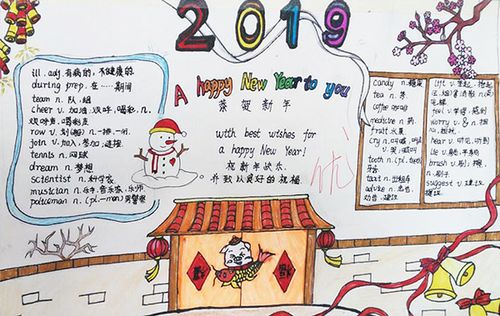 2019
A happy New Year to you
恭贺新年
with best wishes for
a happy New Year!
祝新年快乐.
并致以美好的祝福.
优
ill. adj. 有病的, 不健康的
during prep. 在……期间
team n. 队, 组
cheer v. 加油, 欢呼, 喝彩. n.
欢呼声, 喝彩声
row v. 划(船) n. 一排, 一行.
join v. 加入, 参加, 连接.
tennis n. 网球
dream n. 梦想
scientist n. 科学家
musician n.
policeman n. (pl. -men) 男警察
candy n. 糖果
tea n. 茶
coffee
medicine n. 药
fruit 水果
cry n.
tooth n. (pl. teeth)
牙齿
taxi n. 出租车
advice n. 忠告,
劝告, 建议
lift v.
feel v.
worry v. & n. 担
hear v. 听见, 听到
lie v.
brush v. 刷;
n. 刷子
suggest v. 建议